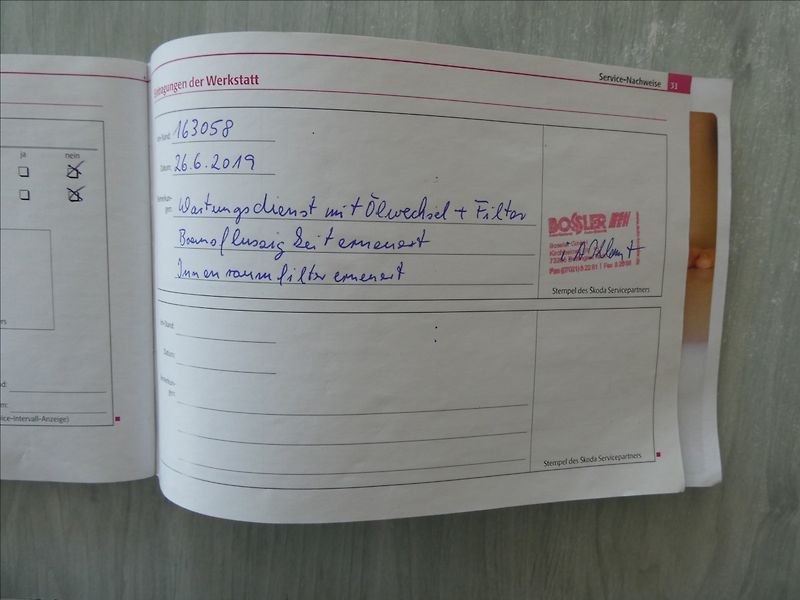 Service-Nachweise 31
Eintragungen der Werkstatt
ja nein
km-Stand: 163058
Datum: 26.6.2019
Bemerkungen: Wartungsdienst mit Ölwechsel + Filter
Bremsflüssigkeit erneuert
Innenraumfilter erneuert
BOSSLER
Stempel des Škoda Servicepartners
km-Stand:
Datum:
Bemerkungen:
Stempel des Škoda Servicepartners
ice-Intervall-Anzeige)